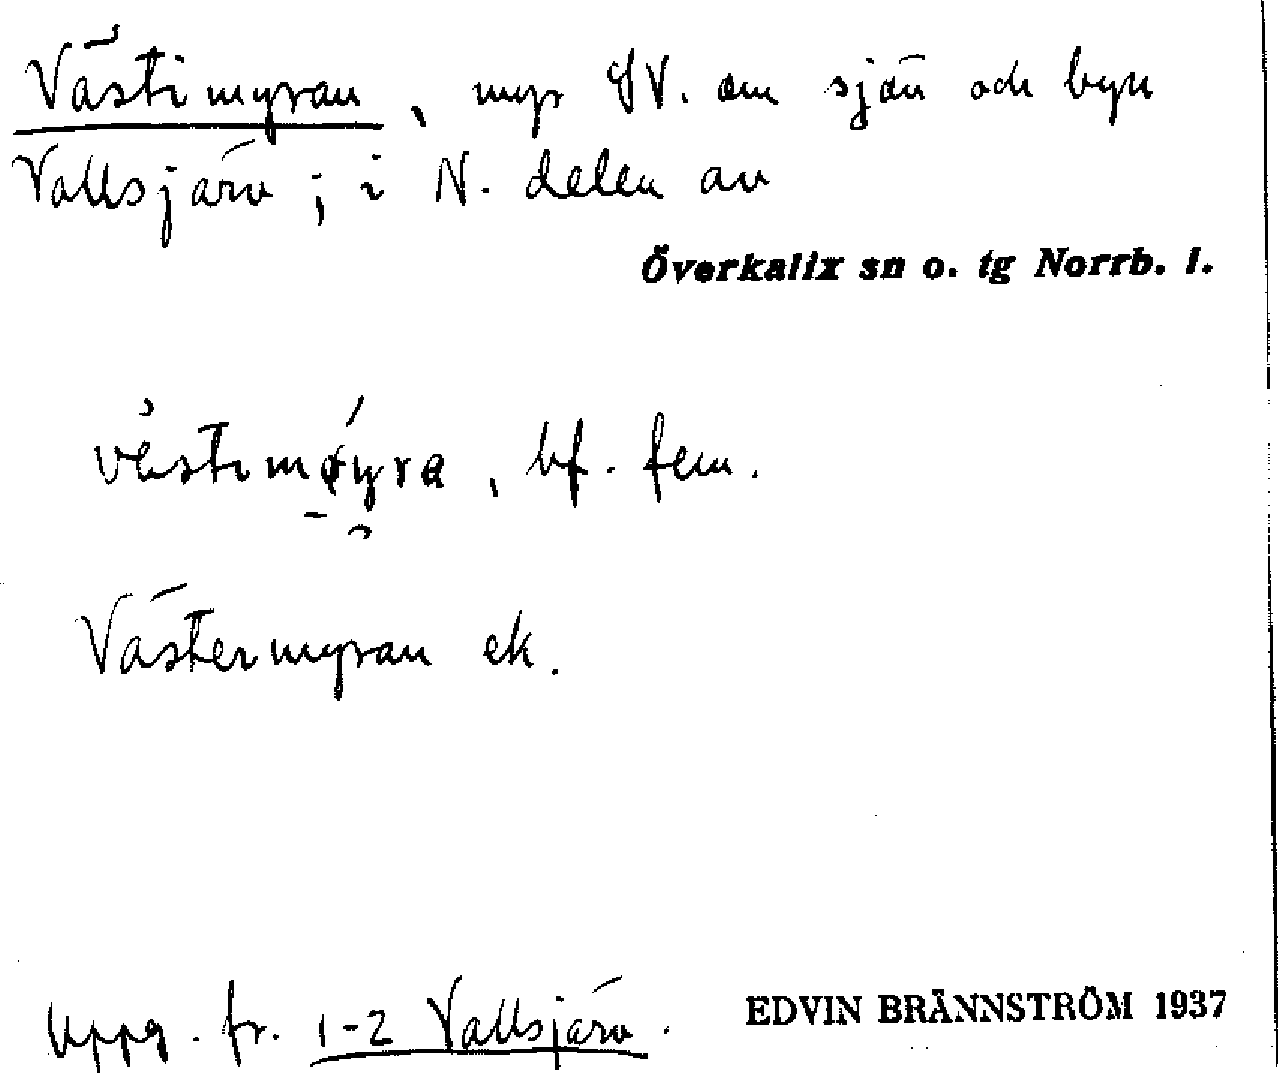 Västimyran, myr SV. om sjön och byn
Vallsjärv; i N. delen av
Överkalix sn o. tg Norrb. l.
västimøyra, bf. fem.
Västermyran ek.
Uppg. fr. 1-2 Vallsjärv.
EDVIN BRÄNNSTRÖM 1937